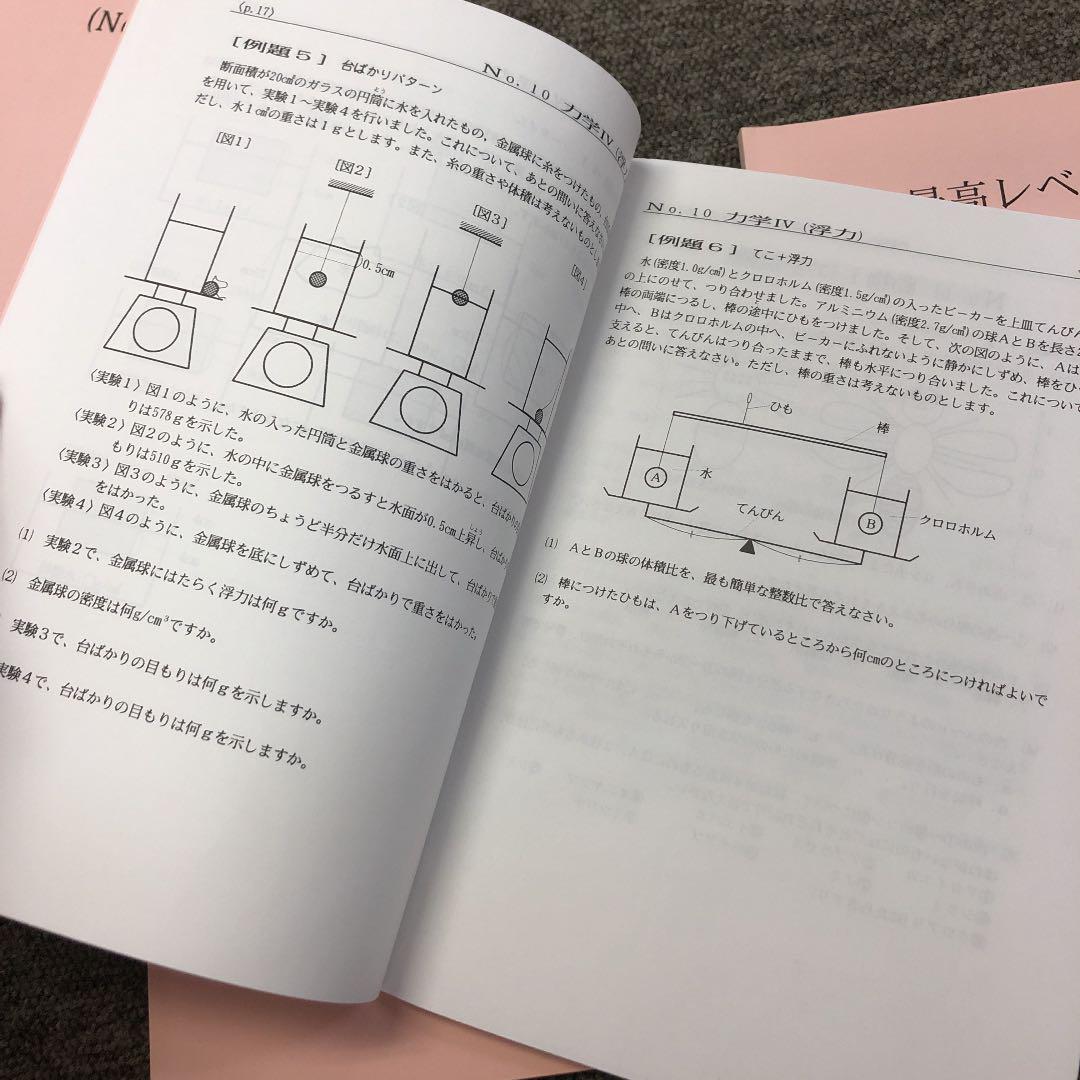 (No
⟨p.17⟩
No. 10 力学Ⅳ(浮
［例題５］ 台ばかりパターン
断面積が20c㎡のガラスの円筒に水を入れたもの，金属球に糸をつけたもの，
とう
を用いて，実験１～実験４を行いました。これについて，あとの問いに答えなさい
だし，水１c㎥の重さは１ｇとします。また，糸の重さや体積は考えないものとし
[図1]
[図2]
[図3]
[図4]
0.5cm
〈実験１〉図１のように，水の入った円筒と金属球の重さをはかると，台ばかりの
りは578ｇを示した。
〈実験２〉図２のように，水の中に金属球をつるすと水面が0.5cm上昇し，台ばかり
しょう
もりは510ｇを示した。
〈実験３〉図３のように，金属球のちょうど半分だけ水面上に出して，台ばかりで
をはかった。
〈実験４〉図４のように，金属球を底にしずめて，台ばかりで重さをはかった。
(1) 実験２で，金属球にはたらく浮力は何ｇですか。
(2) 金属球の密度は何g/cm³ですか。
実験３で，台ばかりの目もりは何ｇを示しますか。
実験４で，台ばかりの目もりは何ｇを示しますか。
最高レベ
No. 10 力学Ⅳ(浮力)
［例題６］ てこ＋浮力
水(密度1.0g/c㎥)とクロロホルム(密度1.5g/c㎥)の入ったビーカーを上皿てんびん
の上にのせて，つり合わせました。アルミニウム(密度2.7g/c㎥)の球ＡとＢを長さ
棒の両端につるし，棒の途中にひもをつけました。そして，次の図のように，Ａは
中へ，Ｂはクロロホルムの中へ，ビーカーにふれないように静かにしずめ，棒をひ
支えると，てんびんはつり合ったままで，棒も水平につり合いました。これについて
あとの問いに答えなさい。ただし，棒の重さは考えないものとします。
ひも
棒
水
A
てんびん
B
クロロホルム
(1) ＡとＢの球の体積比を，最も簡単な整数比で答えなさい。
(2) 棒につけたひもは，Ａをつり下げているところから何cmのところにつければよいで
すか。